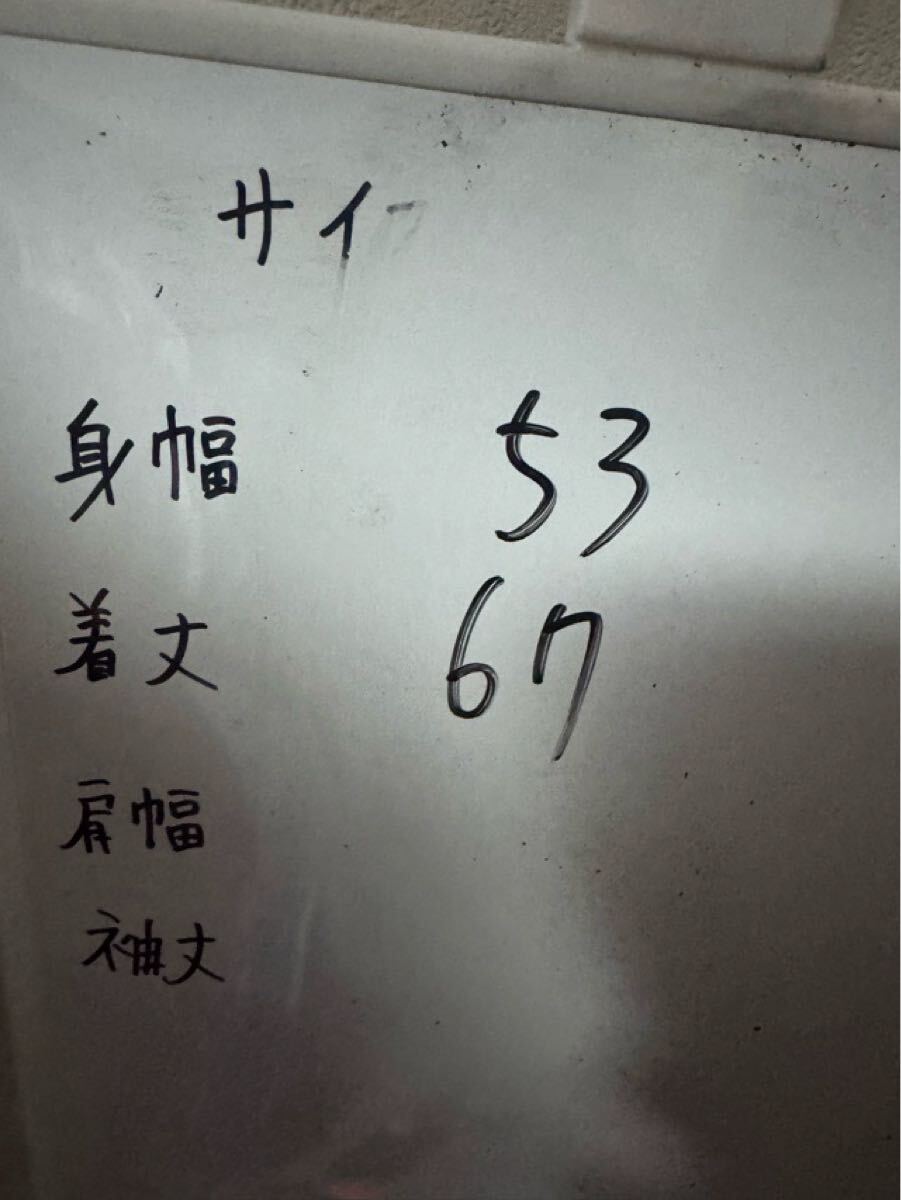 サイ
身幅 53
着丈 67
肩幅
袖丈